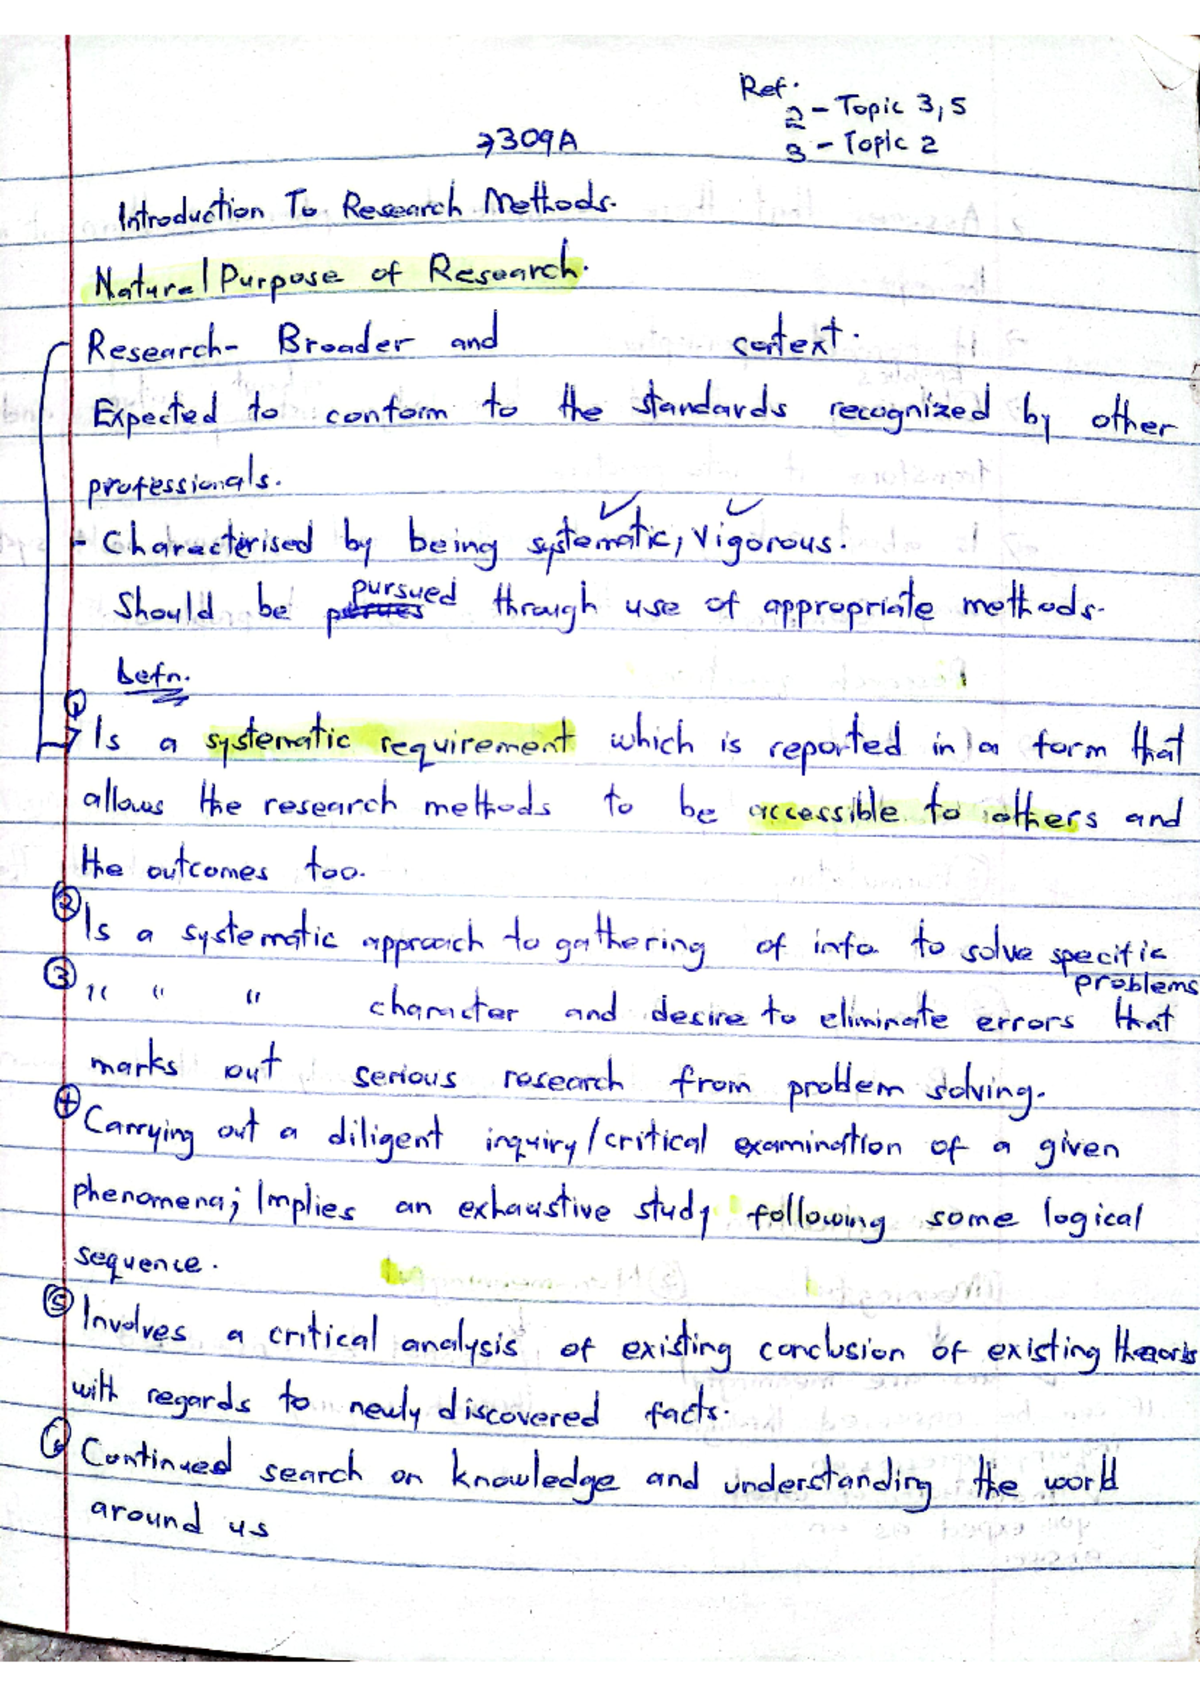 Ref.
2 - Topic 3, 5
3 - Topic 2
309A
Introduction To Research Methods.
Natural Purpose of Research.
Research- Broader and context.
Expected to conform to the standards recognized by other
professionals.
- Characterised by being systematic, vigorous.
Should be pursued through use of appropriate methods.
Defn.
① Is a systematic requirement which is reported in a form that
allows the research methods to be accessible to others and
the outcomes too.
② Is a systematic approach to gathering of info to solve specific
problems
③ " " " character and desire to eliminate errors that
marks out serious research from problem solving.
④ Carrying out a diligent inquiry/critical examination of a given
phenomena; Implies an exhaustive study following some logical
sequence.
⑤ Involves a critical analysis of existing conclusion of existing
with regards to newly discovered facts.
⑥ Continued search on knowledge and understanding the world
around us